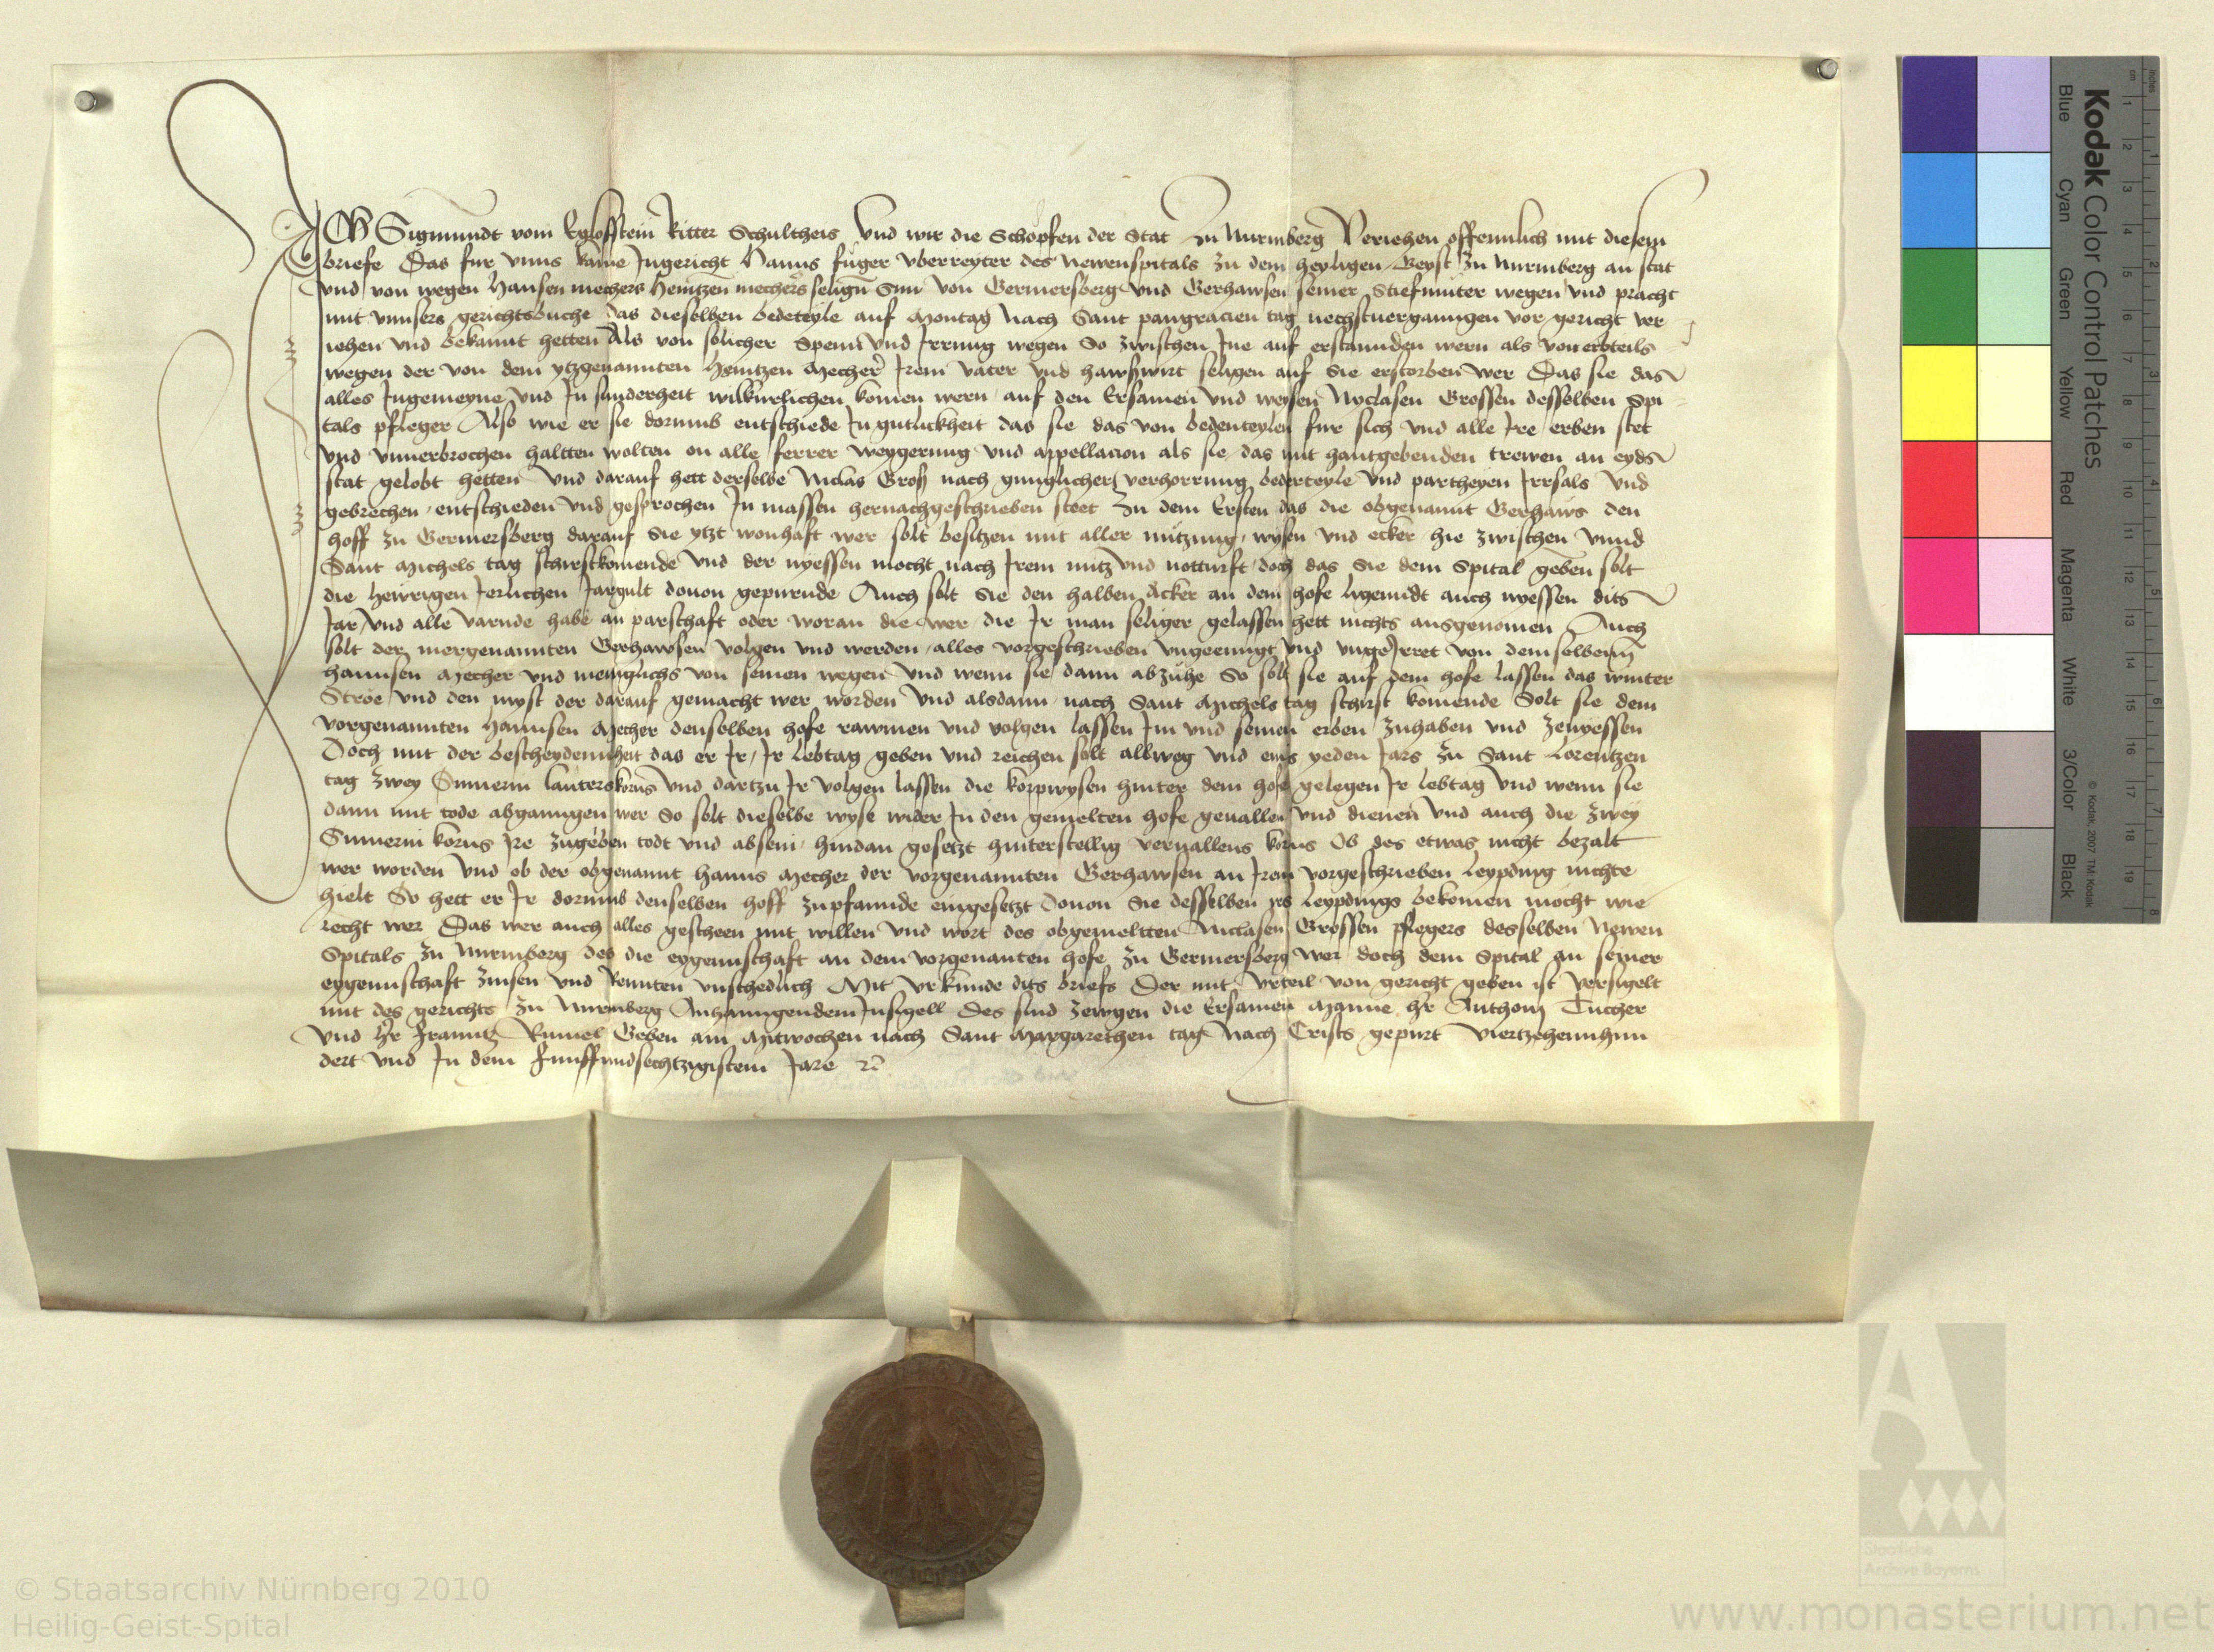 ICH Sigmundt vom Egloffstein Ritter Schultheis Vnd wir die Schopfen der Stat Zu Nuremberg Veriehen offennlich mit diesem
briefe Das fur vnns kame Ingericht Hanns fuger vberreyter des Newenspitals zu dem heyligen Geyst zu Nuremberg an stat
vnd von wegen Hansen mechers Heintzen mechers seligen Sun von Germersberg vnd Gerhawsen seiner Stiefmuter wegen vnd pracht
mit vnnsers gerichtsbuche das dieselben bedeteyle auf Montag Nach Sant pangracien tag nechstuerganngen vor gericht ver
iehen vnd bekannt hetten Als von solicher Spenn vnd Irrung wegen So zwischen Ine auf erstannden wern als von erbteils
wegen der von dem ytzgenannten Heintzen Mecher Irem vater vnd hawswirt seligen auf Sie erstorben wer Das sie das
alles Ingemeyne vnd In sunderheit wilkurlichen komen wern auf den Ersamen vnd weysen Nyclasen Grossen desselben Spi
tals pfleger Also wie er sie dorumb entschiede In gutlickheit das sie das von bedenteylen fur sich vnd alle Ire erben stet
vnd vnuerbrochen haltten wolten on alle ferrer weygerung vnd appellacion als sie das mit hantgebenden trewen an eyds
stat gelobt hetten Vnd darauf hett derselbe Niclas Groß nach gnuglicher verhorrung bederteyle vnd partheyen Irrsals vnd
gebrechen entschieden vnd gesprochen In massen hernachgeschrieben steet Zu dem Ersten das die obgenannt Gerhaws den
hoff zu Germersberg darauf Sie ytzt wonhaft wer solt besitzen mit aller nutzung wysen vnd ecker hie zwischen vnnd
Sant Michels tag schirstkomende vnd der nyessen mocht nach Irem nutz vnd notturft doch das Sie dem Spital geben solt
die hewrigen Jerlichen Jargult douon gepurende Auch solt Sie den halben Acker an dem hofe ligenndt auch nyessen dits
Jar vnd alle varnde habe an parschaft oder woran die wer die Ir man seliger gelassen hett nichts ausgenomen Auch
solt der mergenannten Gerhawsen volgen vnd werden alles vorgeschrieben vngeenngt vnd vngeIrret von demselbenn
hannsen Mecher vnd menigklichs von seinen wegen vnd wenn sie dann abzuhe So solt sie auf dem hofe lassen das winter
Stroe vnd den myst der darauf gemacht wer worden Vnd alsdann nach Sant Michels tag schirst komende Solt sie dem
vorgenannten Hannsen Mecher denselben hofe rawmen vnd volgen lassen Im vnd seinen erben zuhaben vnd zenyessen
Doch mit der bescheydennheit das er Ir Ir lebtag geben vnd reichen solt allweg vnd eins yeden Jars zu Sant Lorentzen
tag zwey Sumerin lauterskorns Vnd dartzu Ir volgen lassen die korpwysen hinter dem hofe gelegen Ir lebtag Vnd wenn sie
dann mit tode abganngen wer So solt dieselbe wyse wider In den gemelten hofe geuallen vnd dienen Vnd auch die zwey
Sumerin korns Ire zugeben todt vnd absein hindan gesetzt hinterstellig veruallens korns Ob des etwas nicht bezalt
wer worden Vnd ob der obgenannt Hanns Mecher der vorgenannten Gerhawsen an Irem vorgeschrieben leypding nichte
hielt So hett er Ir dorumb denselben hoff zupfannde eingesetzt Douon Sie desselben irs leypdings bekomen mocht wie
recht wer Das wer auch alles gescheen mit willen vnd wort des obgemeltten Niclasen Grossen pflegers desselben Newen
Spitals zu Nuremberg des die eygennschaft an dem vorgenanten hofe zu Germersberg wer doch dem Spital an seiner
eygennschaft zinsen vnd Rennten vnschedlich Mit vrkunde dits briefs Der mit vrteil von gericht geben ist versigelt
mit des gerichts zu Nuremberg Anhanngendem Insigell Des sind zewgen die Ersamen Manne hr Anthony Tucher
vnd hr Franntz Rumel Geben am Mitwochen nach Sant Margarethen tag Nach Crists gepurt Viertzehennhun
dert vnd In dem funffundsechtzigistem Jare
Kodak Color Control Patches
Blue Cyan Green Yellow Red Magenta White 3/Color Black
© Kodak, 2007 TM: Kodak
cm 1 2 3 4 5 6 7 8 9 10 11 12 13 14 15 16 17 18 19
inches 1 2 3 4 5 6 7 8
Staatliche
Archive Bayerns
© Staatsarchiv Nürnberg 2010
Heilig-Geist-Spital
www.monasterium.net